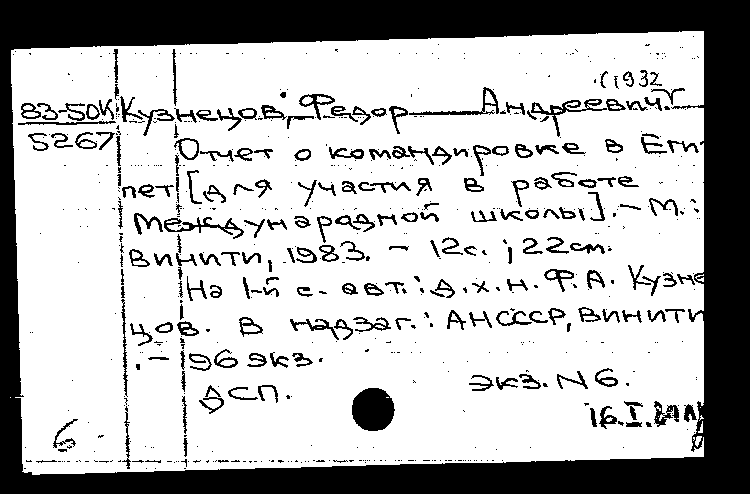 (1932
83-50К Кузнецов, Федор Андреевич.
5267 Отчет о командировке в Еги-
пет [для участия в работе
Международной школы]. - М.:
ВИНИТИ, 1983. - 12с. ; 22см.
На 1-й с. авт.: д.х.н. Ф.А. Кузне-
цов. В надзаг.: АНСССР, ВИНИТИ
. - 96 экз.
ДСП. экз. N6.
16.I.
6